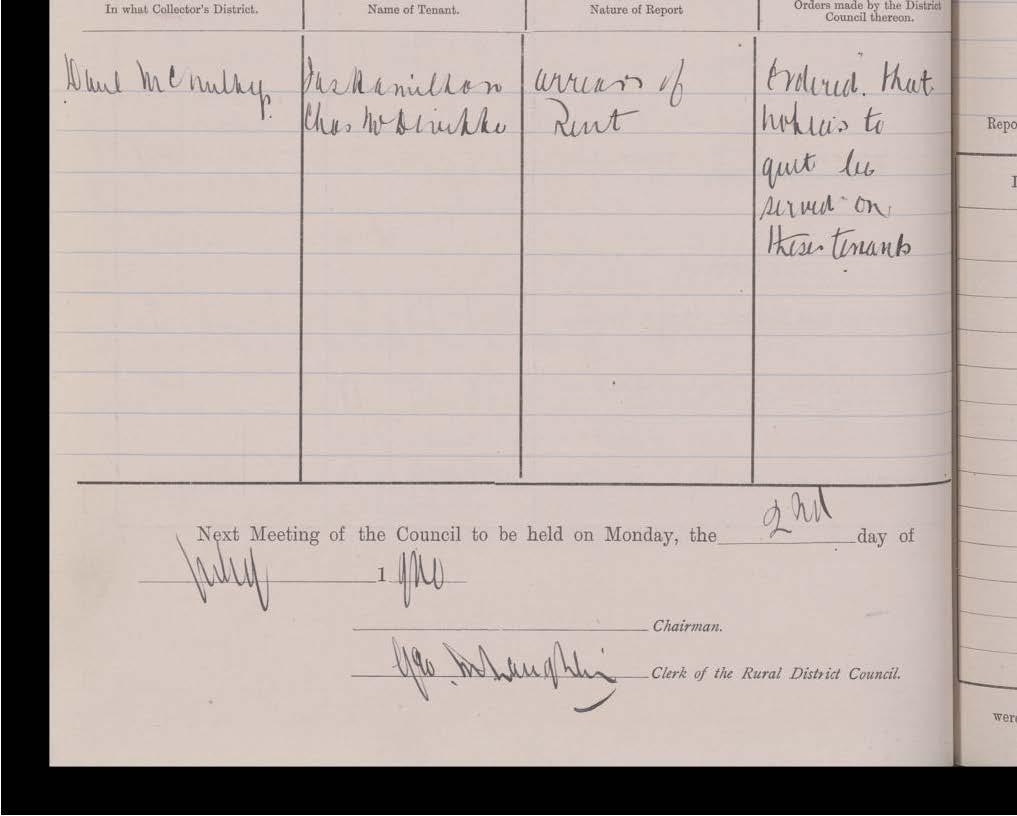 In what Collector's District.
Name of Tenant.
Nature of Report
Orders made by the District
Council thereon.
Danl McNulty
Jas Hamilton
Chas
arrears of
Rent
Ordered. that
notices to
quit be
served on
these tenants
Next Meeting of the Council to be held on Monday, the 2nd day of
July 1900
Chairman.
Geo McLaughlin Clerk of the Rural District Council.
Repo
I
were